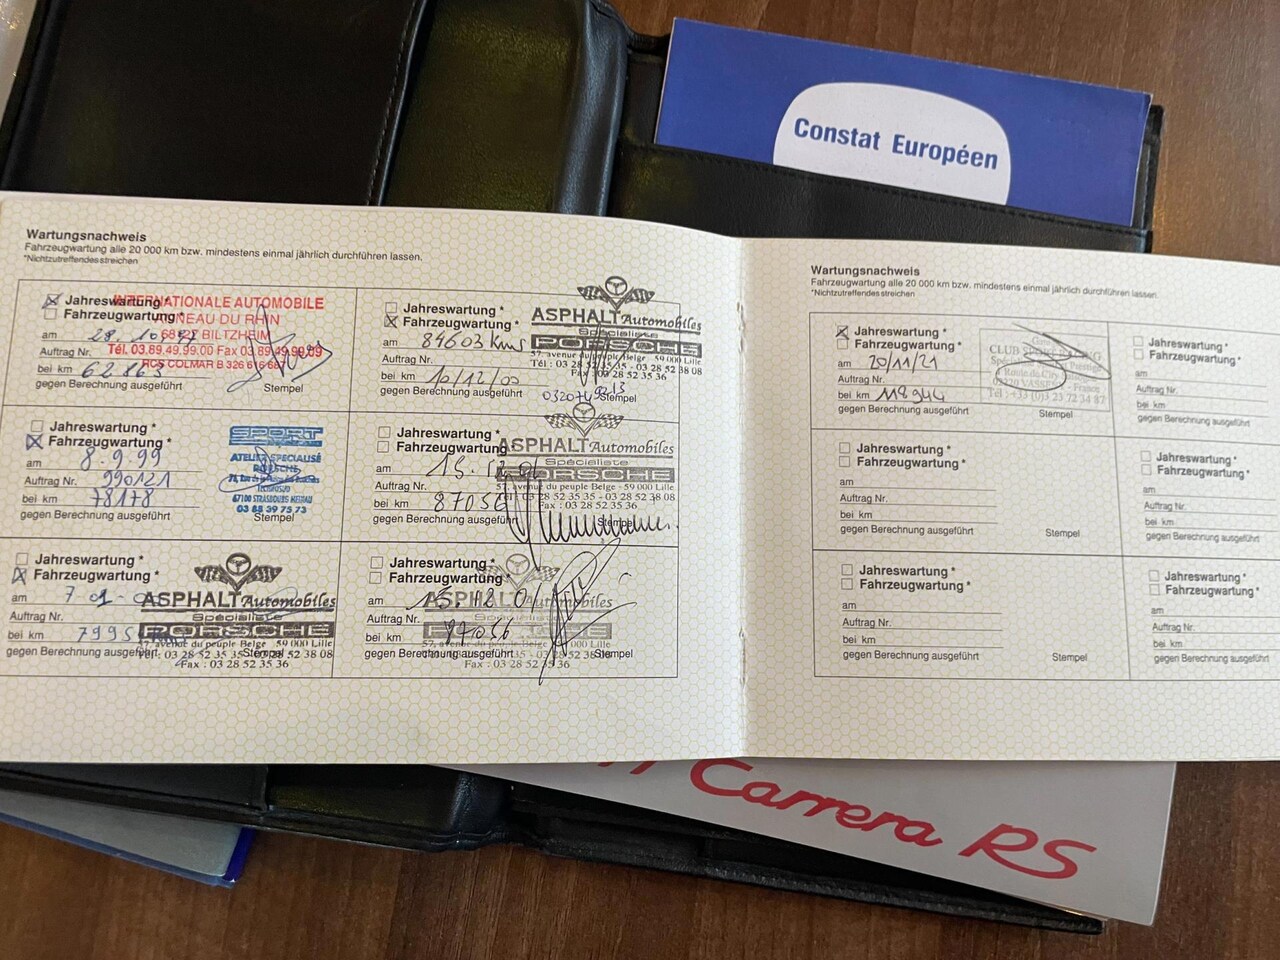 Constat Européen
Wartungsnachweis
Fahrzeugwartung alle 20 000 km bzw. mindestens einmal jährlich durchführen lassen.
*Nichtzutreffendes streichen
Jahreswartung *
Fahrzeugwartung *
am 28.10
Auftrag Nr.
bei km 62863
gegen Berechnung ausgeführt
Stempel
INTERNATIONALE AUTOMOBILE
DU RHIN
BILTZHEIM
Tél. 03.89.49.99.00 Fax 03.89.49.99.09
RCS COLMAR B 326
Jahreswartung *
Fahrzeugwartung *
am 84603 kms
Auftrag Nr.
bei km 10/12/00
gegen Berechnung ausgeführt
Stempel
ASPHALT Automobiles
Spécialiste
PORSCHE
57, avenue du peuple Belge 59 000 Lille
Tél : 03 28 52 35 35 - 03 28 52 38 08
Fax : 03 28 52 35 36
Jahreswartung *
Fahrzeugwartung *
am 8.9.99
Auftrag Nr. 990121
bei km 78178
gegen Berechnung ausgeführt
Stempel
SPORT
ATELIER SPECIALISÉ
PORSCHE
67100 STRASBOURG
03 88 39 75 73
Jahreswartung *
Fahrzeugwartung
am 15.12.01
Auftrag Nr.
bei km 87056
gegen Berechnung ausgeführt
Stempel
ASPHALT Automobiles
Spécialiste
PORSCHE
57, avenue du peuple Belge - 59 000 Lille
Tél : 03 28 52 35 35 - 03 28 52 38 08
Fax : 03 28 52 35 36
Jahreswartung *
Fahrzeugwartung *
am 7 01
Auftrag Nr.
bei km
gegen Berechnung ausgeführt
Stempel
ASPHALT Automobiles
Spécialiste
PORSCHE
57, avenue du peuple Belge 59 000 Lille
Tél : 03 28 52 35 35 - 03 28 52 38 08
Fax : 03 28 52 35 36
Jahreswartung *
Fahrzeugwartung *
am 15.12.01
Auftrag Nr.
bei km 87056
gegen Berechnung ausgeführt
Stempel
ASPHALT Automobiles
Spécialiste
PORSCHE
57, avenue du peuple Belge 59 000 Lille
Fax : 03 28 52 35 36
Wartungsnachweis
Fahrzeugwartung alle 20 000 km bzw. mindestens einmal jährlich durchführen lassen.
*Nichtzutreffendes streichen
Jahreswartung *
Fahrzeugwartung *
am 20/11/21
Auftrag Nr.
bei km 118 944
gegen Berechnung ausgeführt
Stempel
CLUB
Tél : +33 (0)3 23 72 34 87
Jahreswartung *
Fahrzeugwartung *
am
Auftrag Nr.
bei km
gegen Berechnung ausgeführt
Jahreswartung *
Fahrzeugwartung *
am
Auftrag Nr.
bei km
gegen Berechnung ausgeführt
Stempel
Jahreswartung *
Fahrzeugwartung *
am
Auftrag Nr.
bei km
gegen Berechnung ausgeführt
Jahreswartung *
Fahrzeugwartung *
am
Auftrag Nr.
bei km
gegen Berechnung ausgeführt
Stempel
Jahreswartung *
Fahrzeugwartung *
am
Auftrag Nr.
bei km
gegen Berechnung ausgeführt
Carrera RS